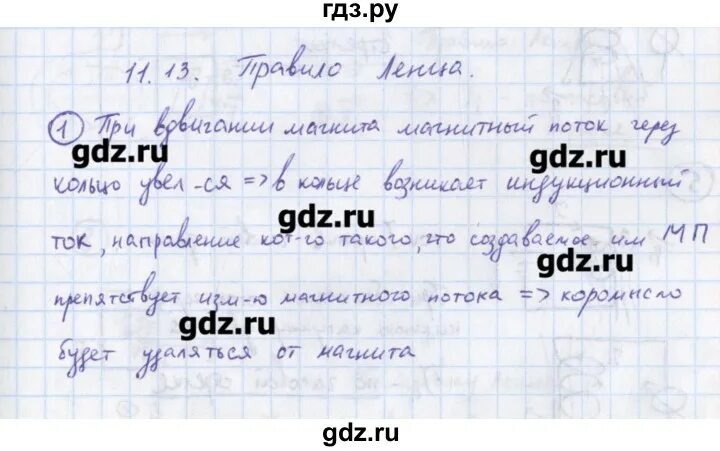 гдз.ру
11.13. Правило Ленца.
1 При вдвигании магнита магнитный поток через
gdz.ru
gdz.ru
кольцо увел-ся => в кольце возникает индукционный
gdz.ru
ток, направление кот-го такого, что создаваемое им МП
gdz.ru
препятствует изм-ю магнитного потока => коромысло
gdz.ru
будет удаляться от магнита
gdz.ru